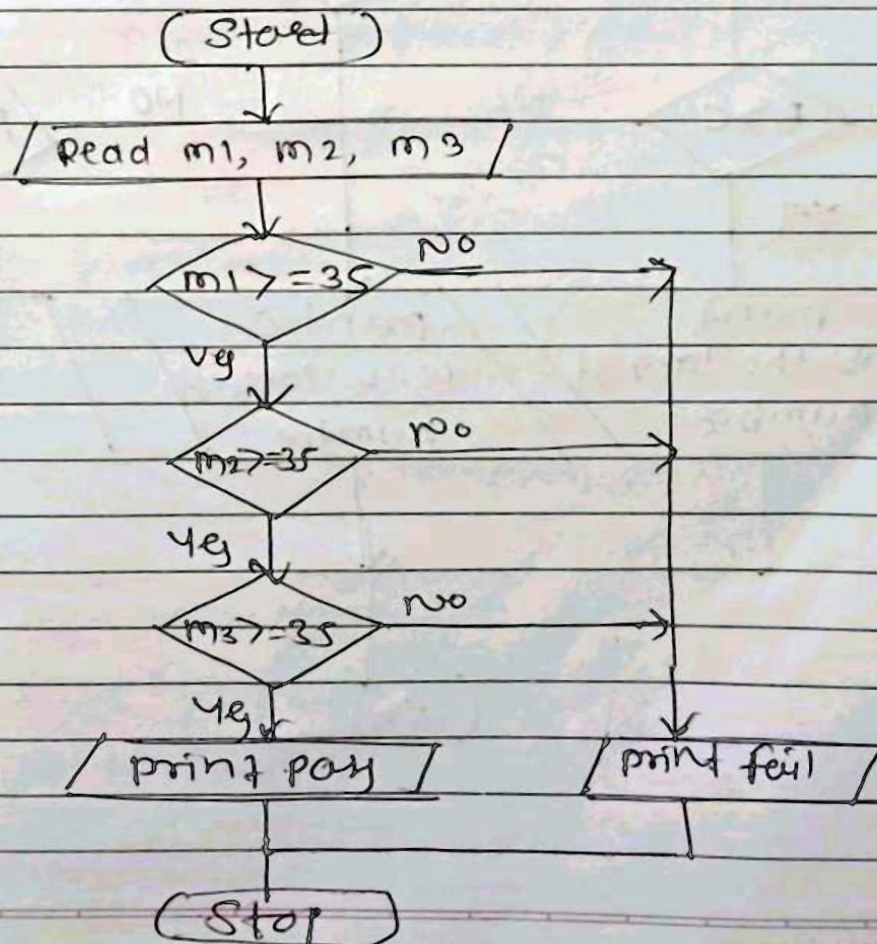 Start
Read m1, m2, m3
m1>=35
No
Yes
m2>=35
No
Yes
m3>=35
No
Yes
print pass
print fail
Stop